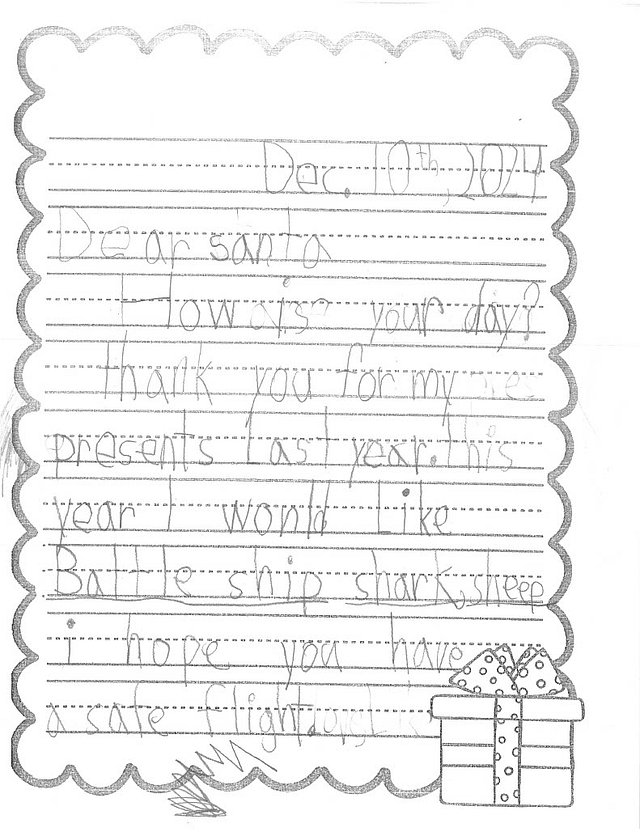 Dec. 10th, 2024
Dear santa
How is your day?
thank you for my
presents last year. this
year I would like
Battle ship shark, sheep
i hope you have
a safe flight.